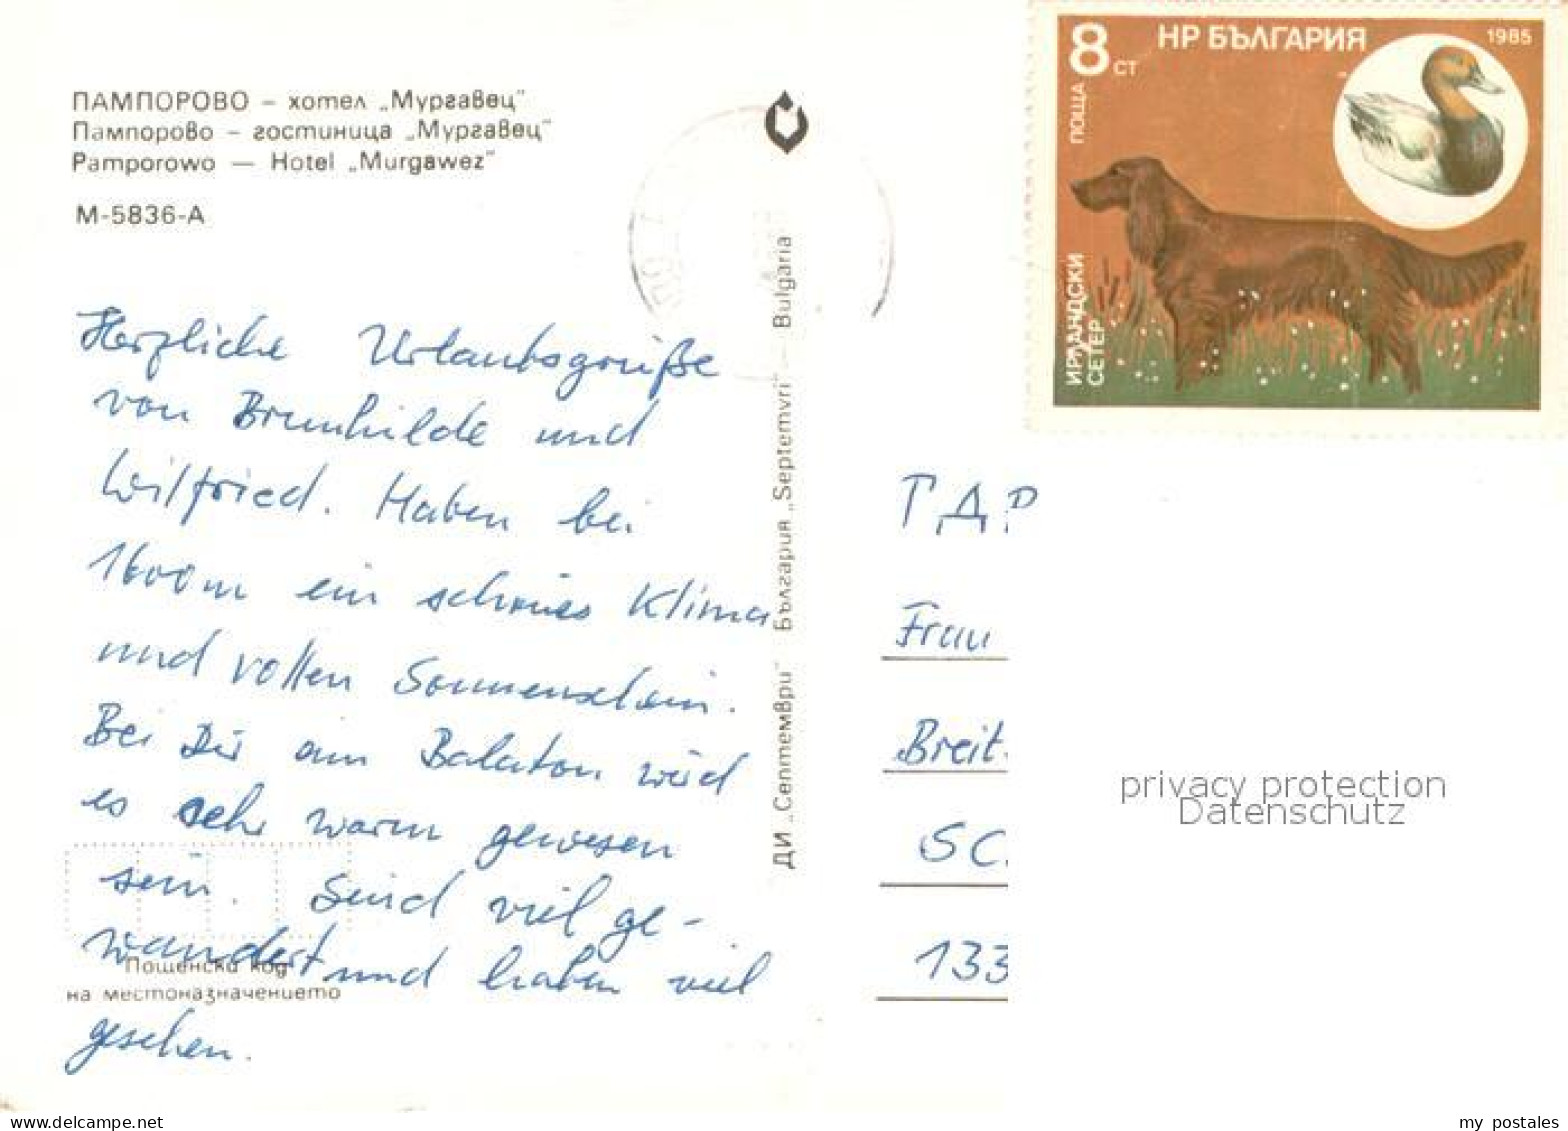 ПАМПОРОВО – хотел „Мургавец"
Пампорово – гостиница „Мургавец"
Pamporowo — Hotel „Murgawez"
М-5836-А
Herzliche Urlaubsgrüße
von Brunhilde und
Wilfried. Haben bei
1600m ein schönes Klima
und vollen Sonnenschein.
Bei Dir am Balaton wird
es sehr warm gewesen
sein. Sind viel ge-
wandert und haben viel
gesehen.
Пощенски код
на местоназначението
ДИ „Септември" България „Septemvri" — Bulgaria
8 ст
НР БЪЛГАРИЯ
1985
ПОЩА
ИРЛАНДСКИ
СЕТЕР
ГДР
Frau
Breit
SC
133
privacy protection
Datenschutz
my postales